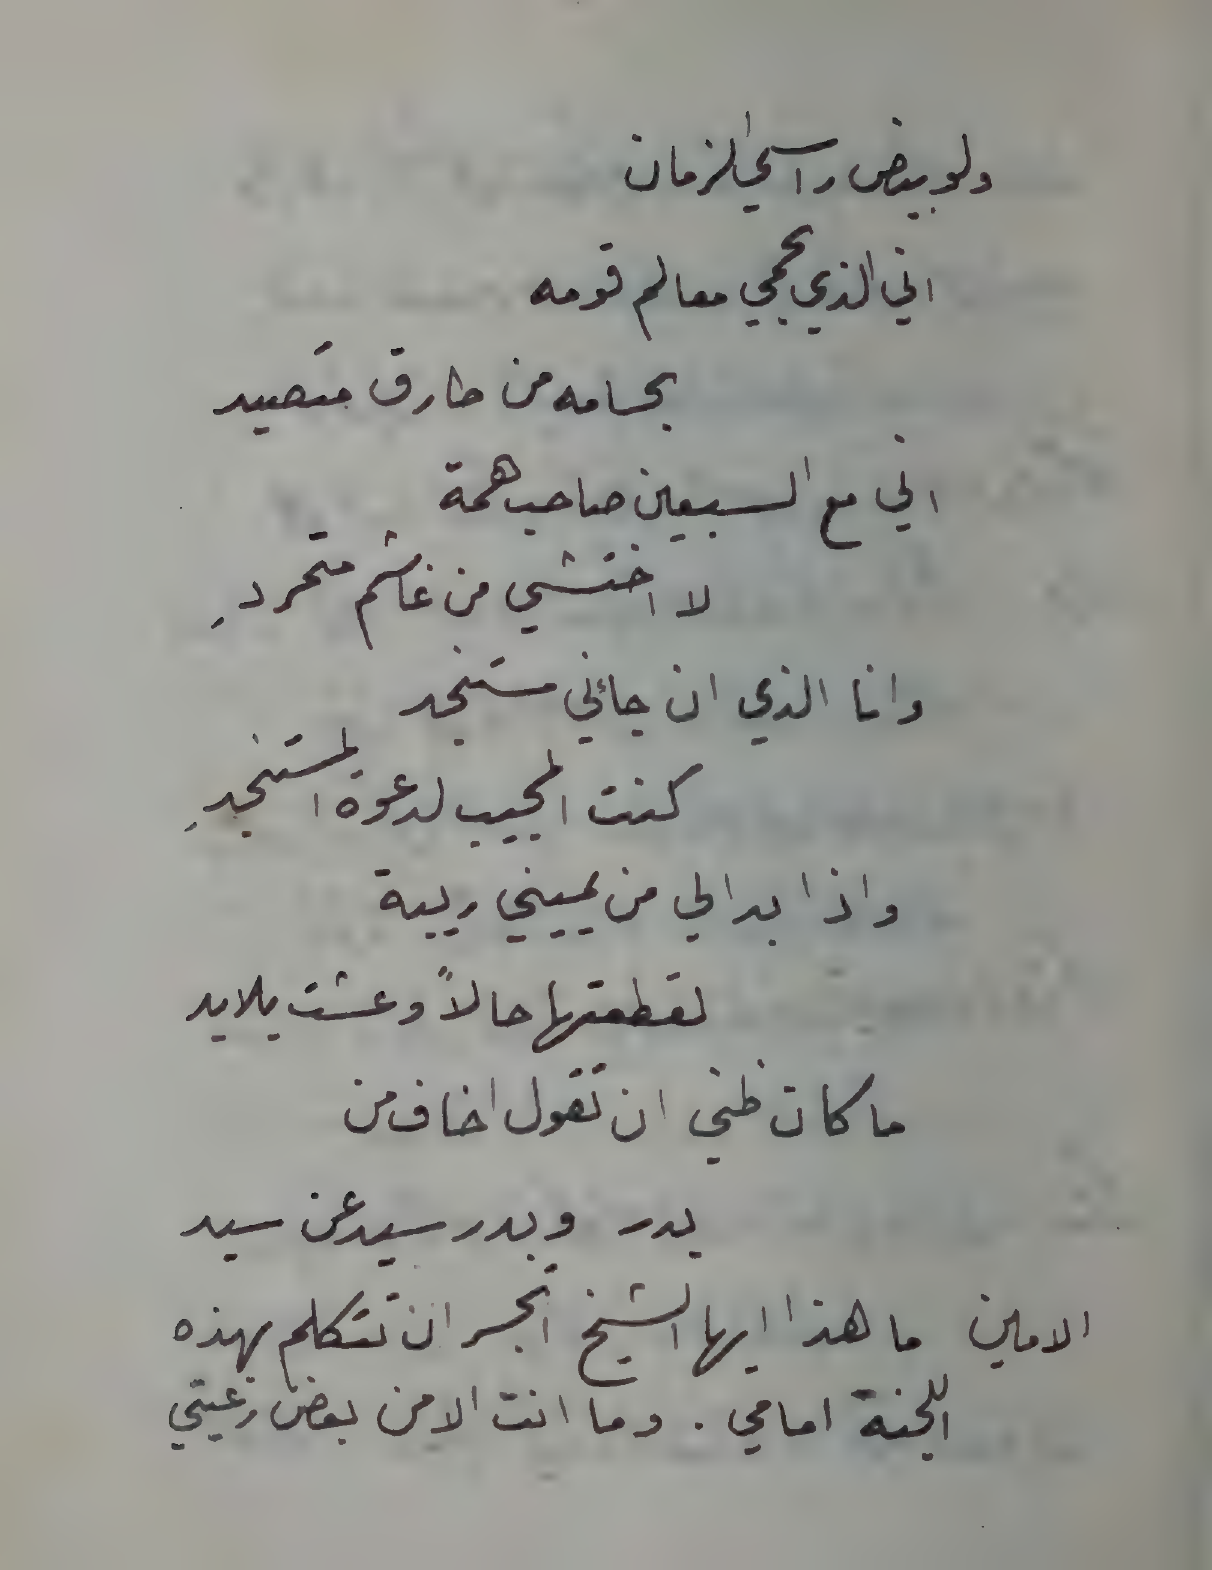 ولو بيض راسي الزمان
اني الذي يحمي معالم قومه
بحسامه من طارق متصيد
اني مع السبعين صاحب همة
لا اختشي من غاشم متمرد
وانا الذي ان جائني مستنجد
كنت المجيب لدعوة المستنجد
واذا بدا لي من يميني ريبة
لقطعتها حالاً وعشت بلا يد
ما كان ظني ان تقول اخاف من
بدر وبدر سيد عن سيد
الامين ما هذا ايها الشيخ اتجسر ان تتكلم بهذه
اللجنة امامي . وما انت الا من بعض رعيتي